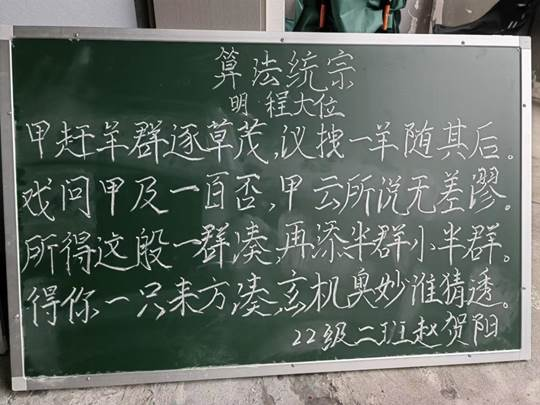 算法统宗
明 程大位
甲赶羊群逐草茂,议拽一羊随其后。
戏问甲及一百否,甲云所说无差谬。
所得这般一群凑,再添半群小半群。
得你一只来方凑,玄机奥妙谁猜透。
22级二班赵贺阳